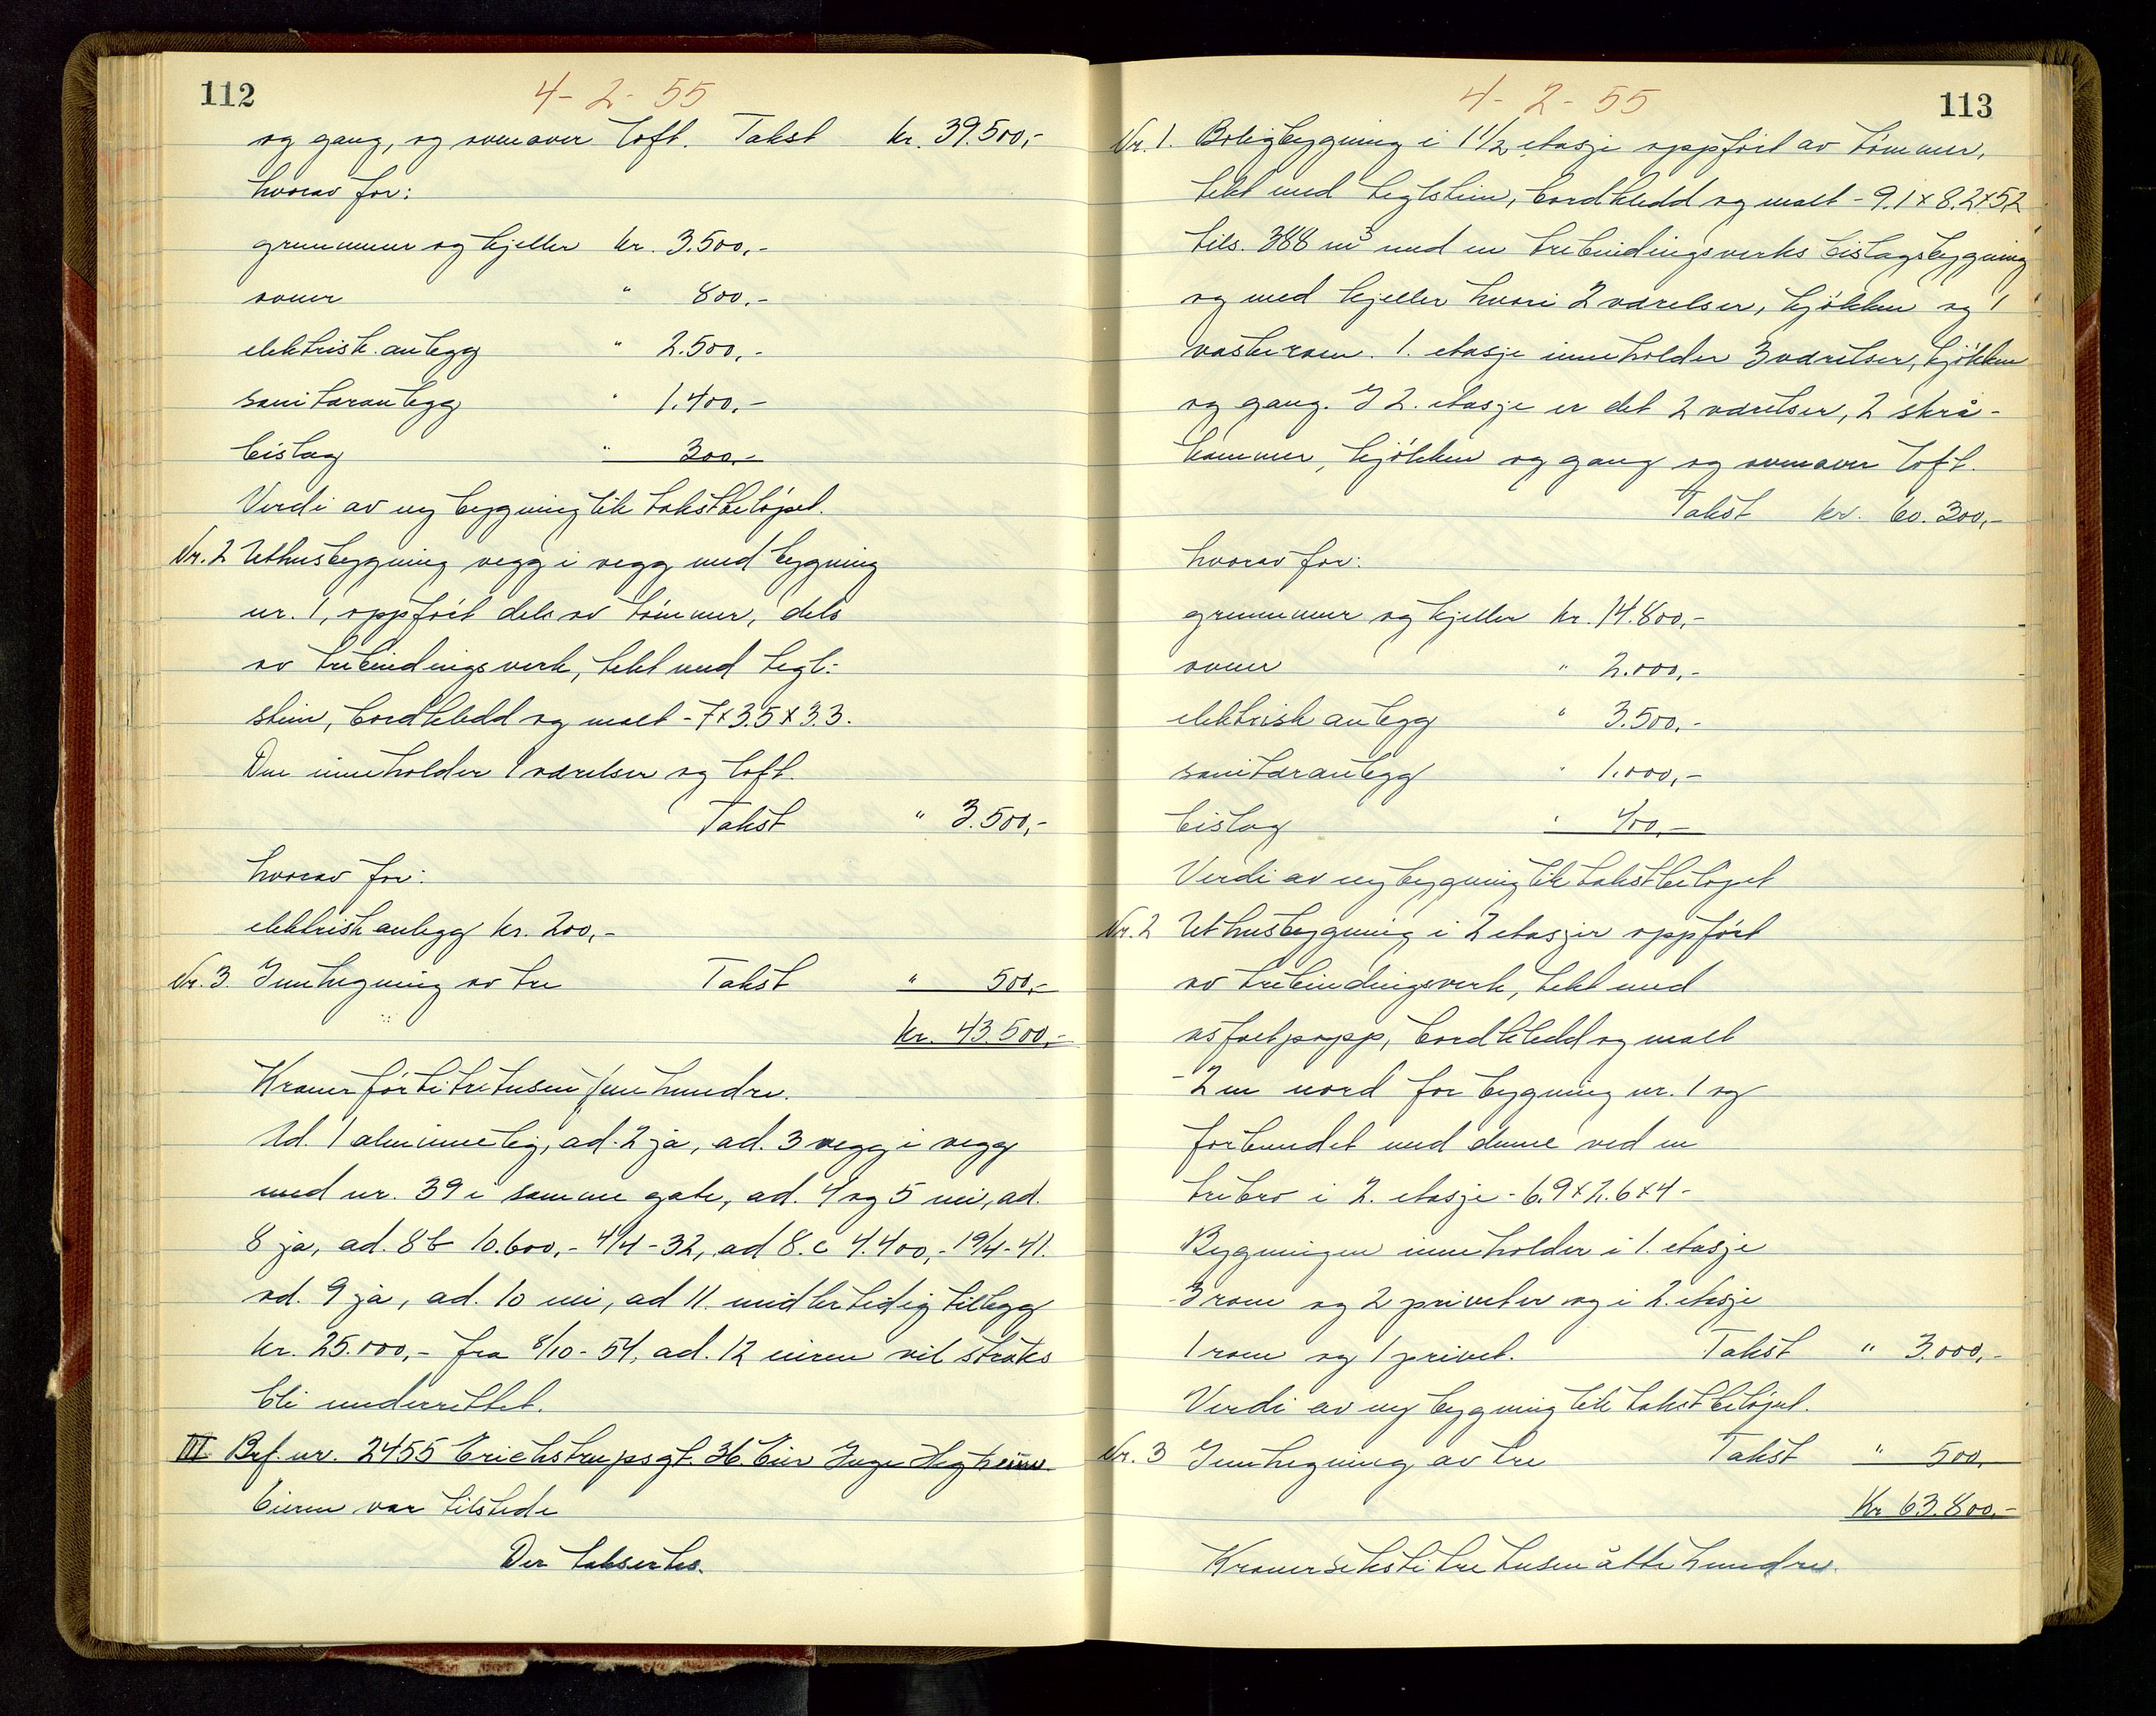 112
4-2-55
og gang, og ovenover loft. Takst kr. 39.500,-
hvorav for:
grunnmur og kjeller kr. 3.500,-
ovner " 800,-
elektrisk anlegg " 2.500,-
sanitæranlegg " 1.400,-
bislag " 300,-
Verdi av ny bygning lik takstbeløpet.
Nr. 2 Uthusbygning vegg i vegg med bygning
nr. 1, oppført dels av tømmer, dels
av trebindingsverk, tekt med tegl-
stein, bordkledd og malt - 7 x 3.5 x 3.3.
Den inneholder 1 værelser og loft.
Takst " 3.500,-
hvorav for:
elektrisk anlegg kr. 200,-
Nr. 3. Innhegning av tre Takst " 500,-
kr. 43.500,-
Kroner førtitretusenfemhundre.
Ad. 1 alminnelig, ad. 2 ja, ad. 3 vegg i vegg
med nr. 39 i samme gate, ad. 4 og 5 nei, ad.
8 ja, ad. 8b 10.600,- 4/4-32, ad 8.c 4.400,- 19/4-41.
ad. 9 ja, ad. 10 nei, ad 11. midlertidig tillegg
kr. 25.000,- fra 8/10-54, ad. 12 eieren vil straks
bli underrettet.
III Brf. nr. 2455 Erichstrupsgt. 36. Eier Inge Hegheim.
Eieren var tilstede
Der taksertes.
113
4-2-55
Nr. 1. Boligbygning i 1 1/2 etasje oppført av tømmer,
tekt med teglstein, bordkledd og malt - 9.1 x 8.2 x 5.2
tils. 388 m3 med en trebindingsverks bislagsbygning
og med kjeller hvori 2 værelser, kjøkken og 1
vaskerom. 1. etasje inneholder 3 værelser, kjøkken
og gang. I 2. etasje er det 2 værelser, 2 skrå-
kammer, kjøkken og gang og ovenover loft.
Takst kr. 60.300,-
hvorav for:
grunnmur og kjeller kr. 14.800,-
ovner " 2.000,-
elektrisk anlegg " 3.500,-
sanitæranlegg " 1.000,-
bislag " 400,-
Verdi av ny bygning lik takstbeløpet
Nr. 2 Uthusbygning i 2 etasjer oppført
av trebindingsverk, tekt med
asfaltpapp, bordkledd og malt
- 2 m nord for bygning nr. 1 og
forbundet med denne ved en
trebro i 2. etasje - 6.9 x 2.6 x 4 -
Bygningen inneholder i 1. etasje
3 rom og 2 priveter og i 2. etasje
1 rom og 1 privet. Takst " 3.000,-
Verdi av ny bygning lik takstbeløpet.
Nr. 3 Innhegning av tre Takst " 500,-
Kr 63.800,-
Kroner sekstitretusenåttehundre.